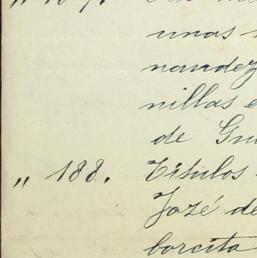 unas
nandez
nillas e
de Gu
„ 188. Titulos
José de
borcita